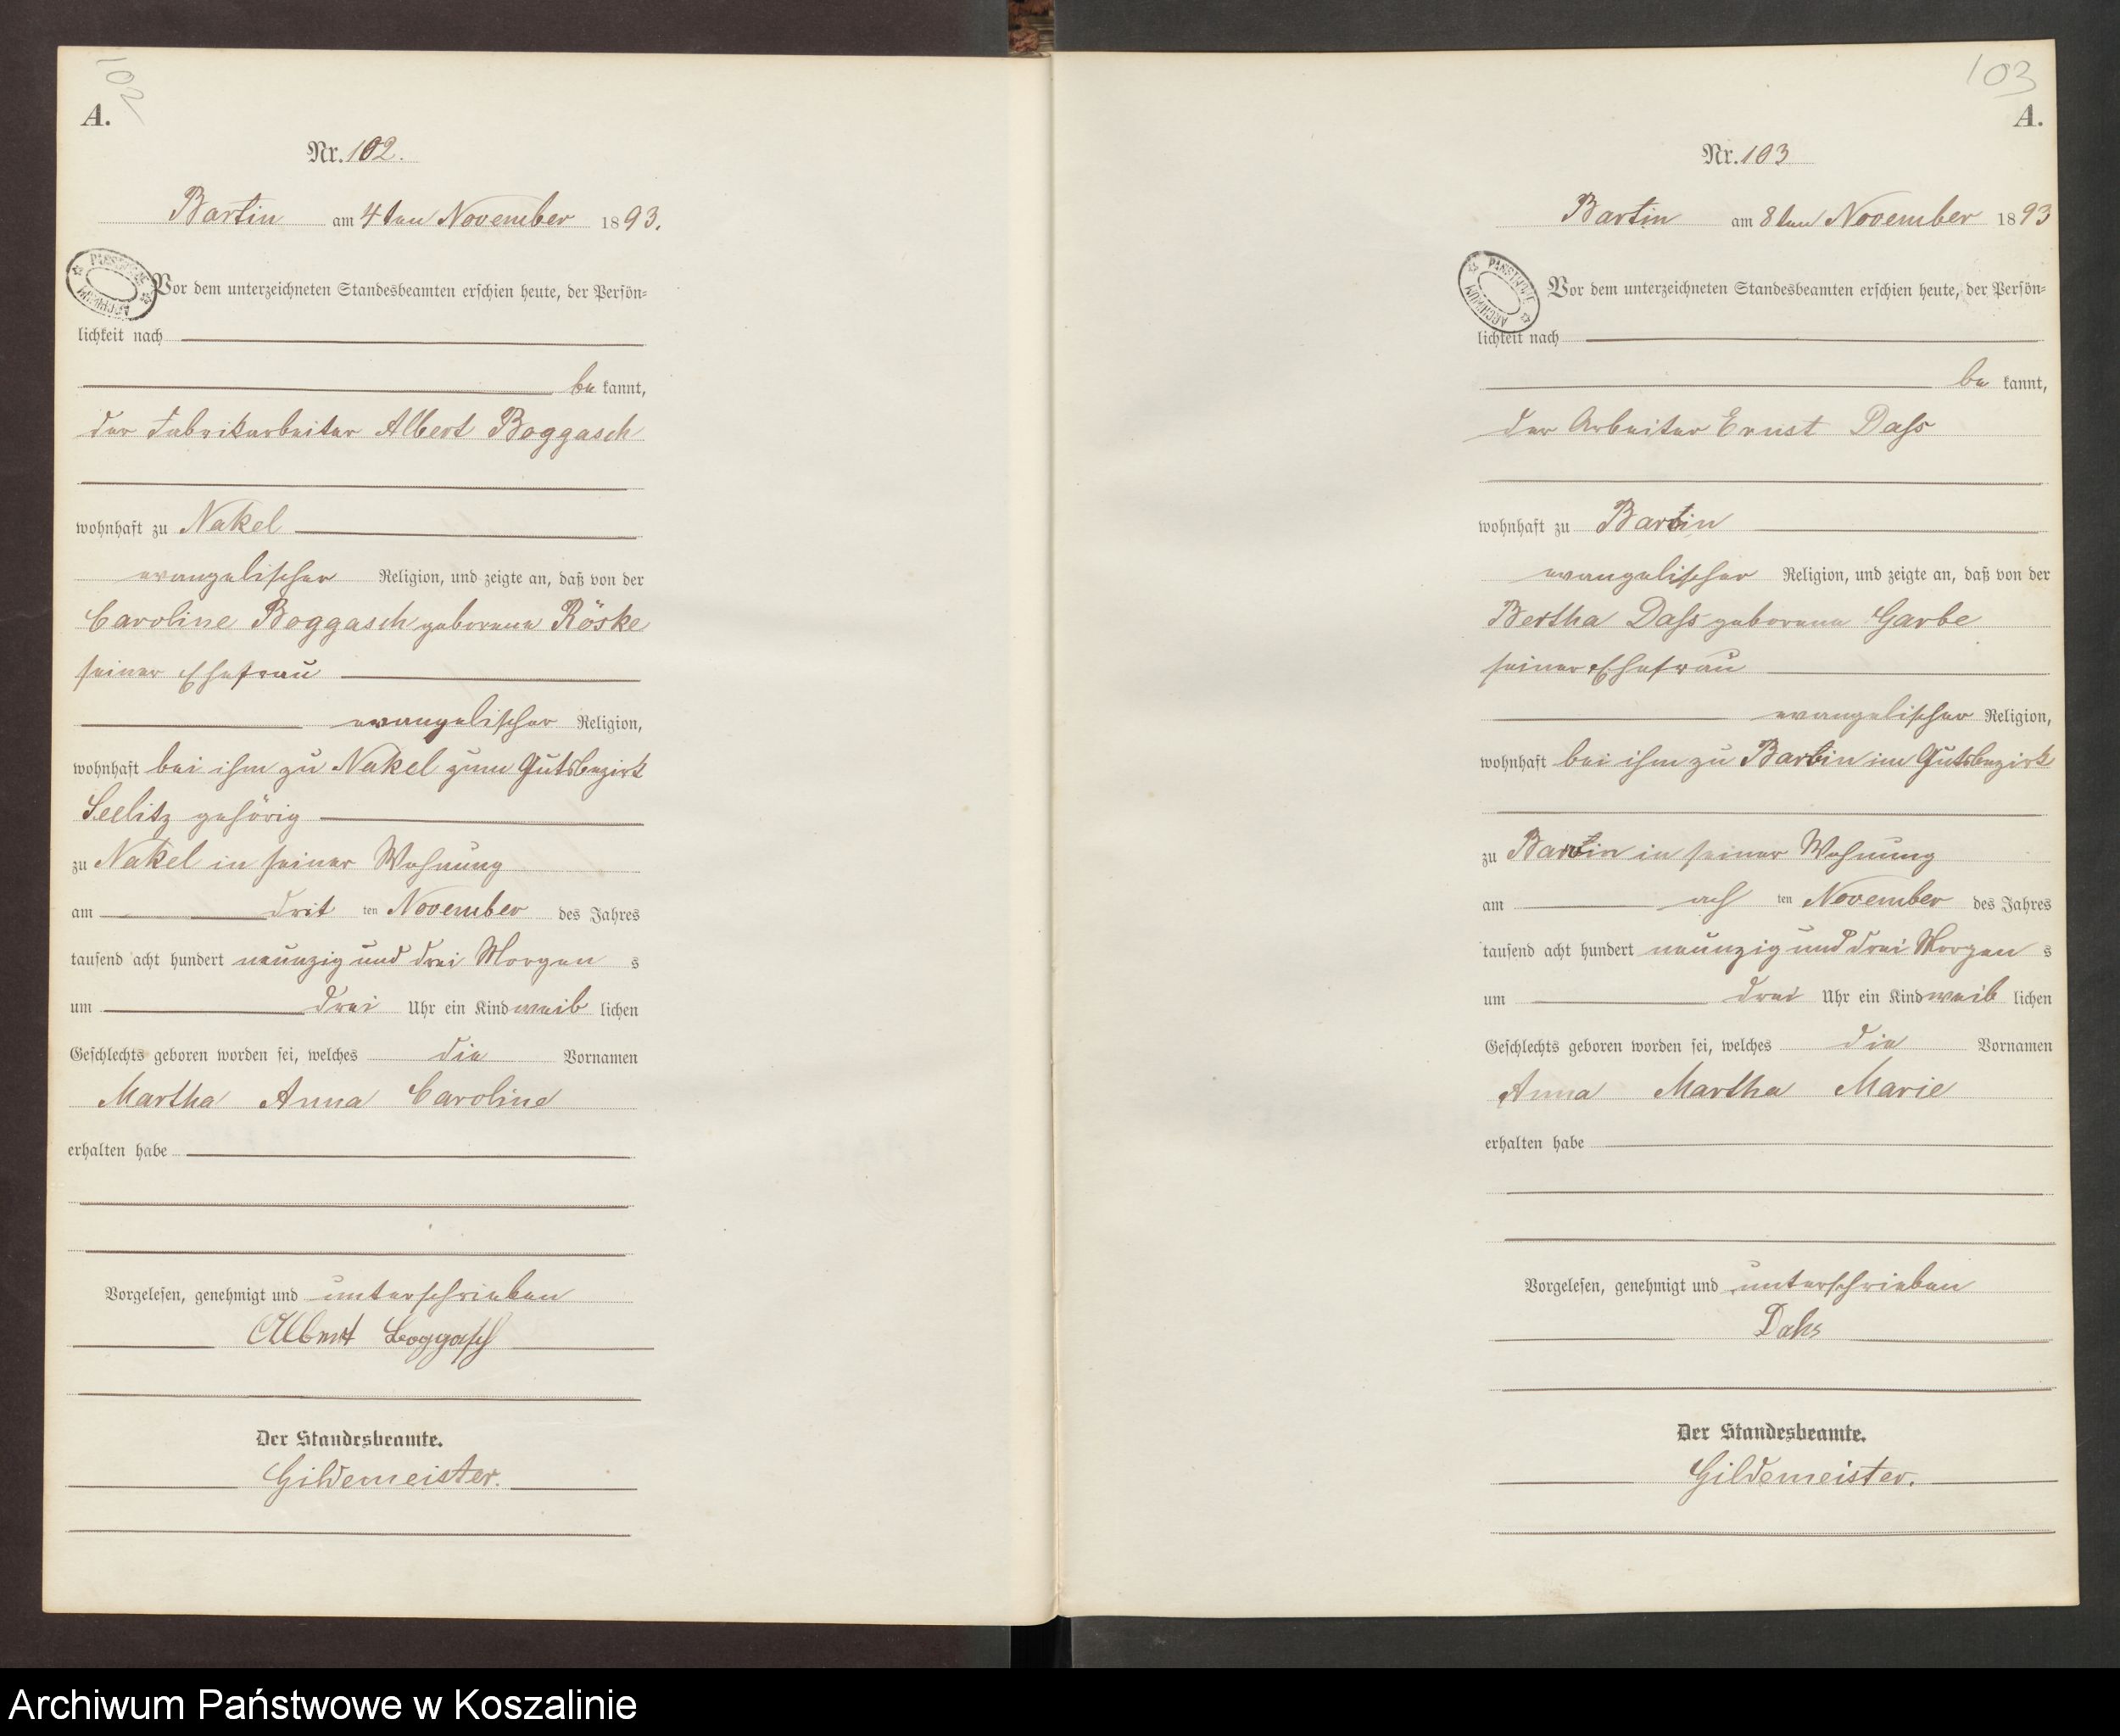 102
A.
Nr. 102.
Bartin am 4ten November 1893.
PAŃSTWOWE ARCHIWUM
Vor dem unterzeichneten Standesbeamten erschien heute, der Persön-
lichkeit nach
be kannt,
der Fabrikarbeiter Albert Boggasch
wohnhaft zu Nakel
evangelischer Religion, und zeigte an, daß von der
Caroline Boggasch geborene Röske
seiner Ehefrau
evangelischer Religion,
wohnhaft bei ihm zu Nakel zum Gutsbezirk
Seelitz gehörig
zu Nakel in seiner Wohnung
am drit ten November des Jahres
tausend acht hundert neunzig und drei Morgen s
um drei Uhr ein Kind weib lichen
Geschlechts geboren worden sei, welches die Vornamen
Martha Anna Caroline
erhalten habe
Vorgelesen, genehmigt und unterschrieben
Albert Boggasch
Der Standesbeamte.
Gildemeister.
103
A.
Nr. 103
Bartin am 8ten November 1893
PAŃSTWOWE ARCHIWUM
Vor dem unterzeichneten Standesbeamten erschien heute, der Persön-
lichkeit nach
be kannt,
der Arbeiter Ernst Daß
wohnhaft zu Bartin
evangelischer Religion, und zeigte an, daß von der
Bertha Daß geborene Garbe
seiner Ehefrau
evangelischer Religion,
wohnhaft bei ihm zu Bartin im Gutsbezirk
zu Bartin in seiner Wohnung
am ach ten November des Jahres
tausend acht hundert neunzig und drei Morgen s
um drei Uhr ein Kind weib lichen
Geschlechts geboren worden sei, welches die Vornamen
Anna Martha Marie
erhalten habe
Vorgelesen, genehmigt und unterschrieben
Dahs
Der Standesbeamte.
Gildemeister.
Archiwum Państwowe w Koszalinie